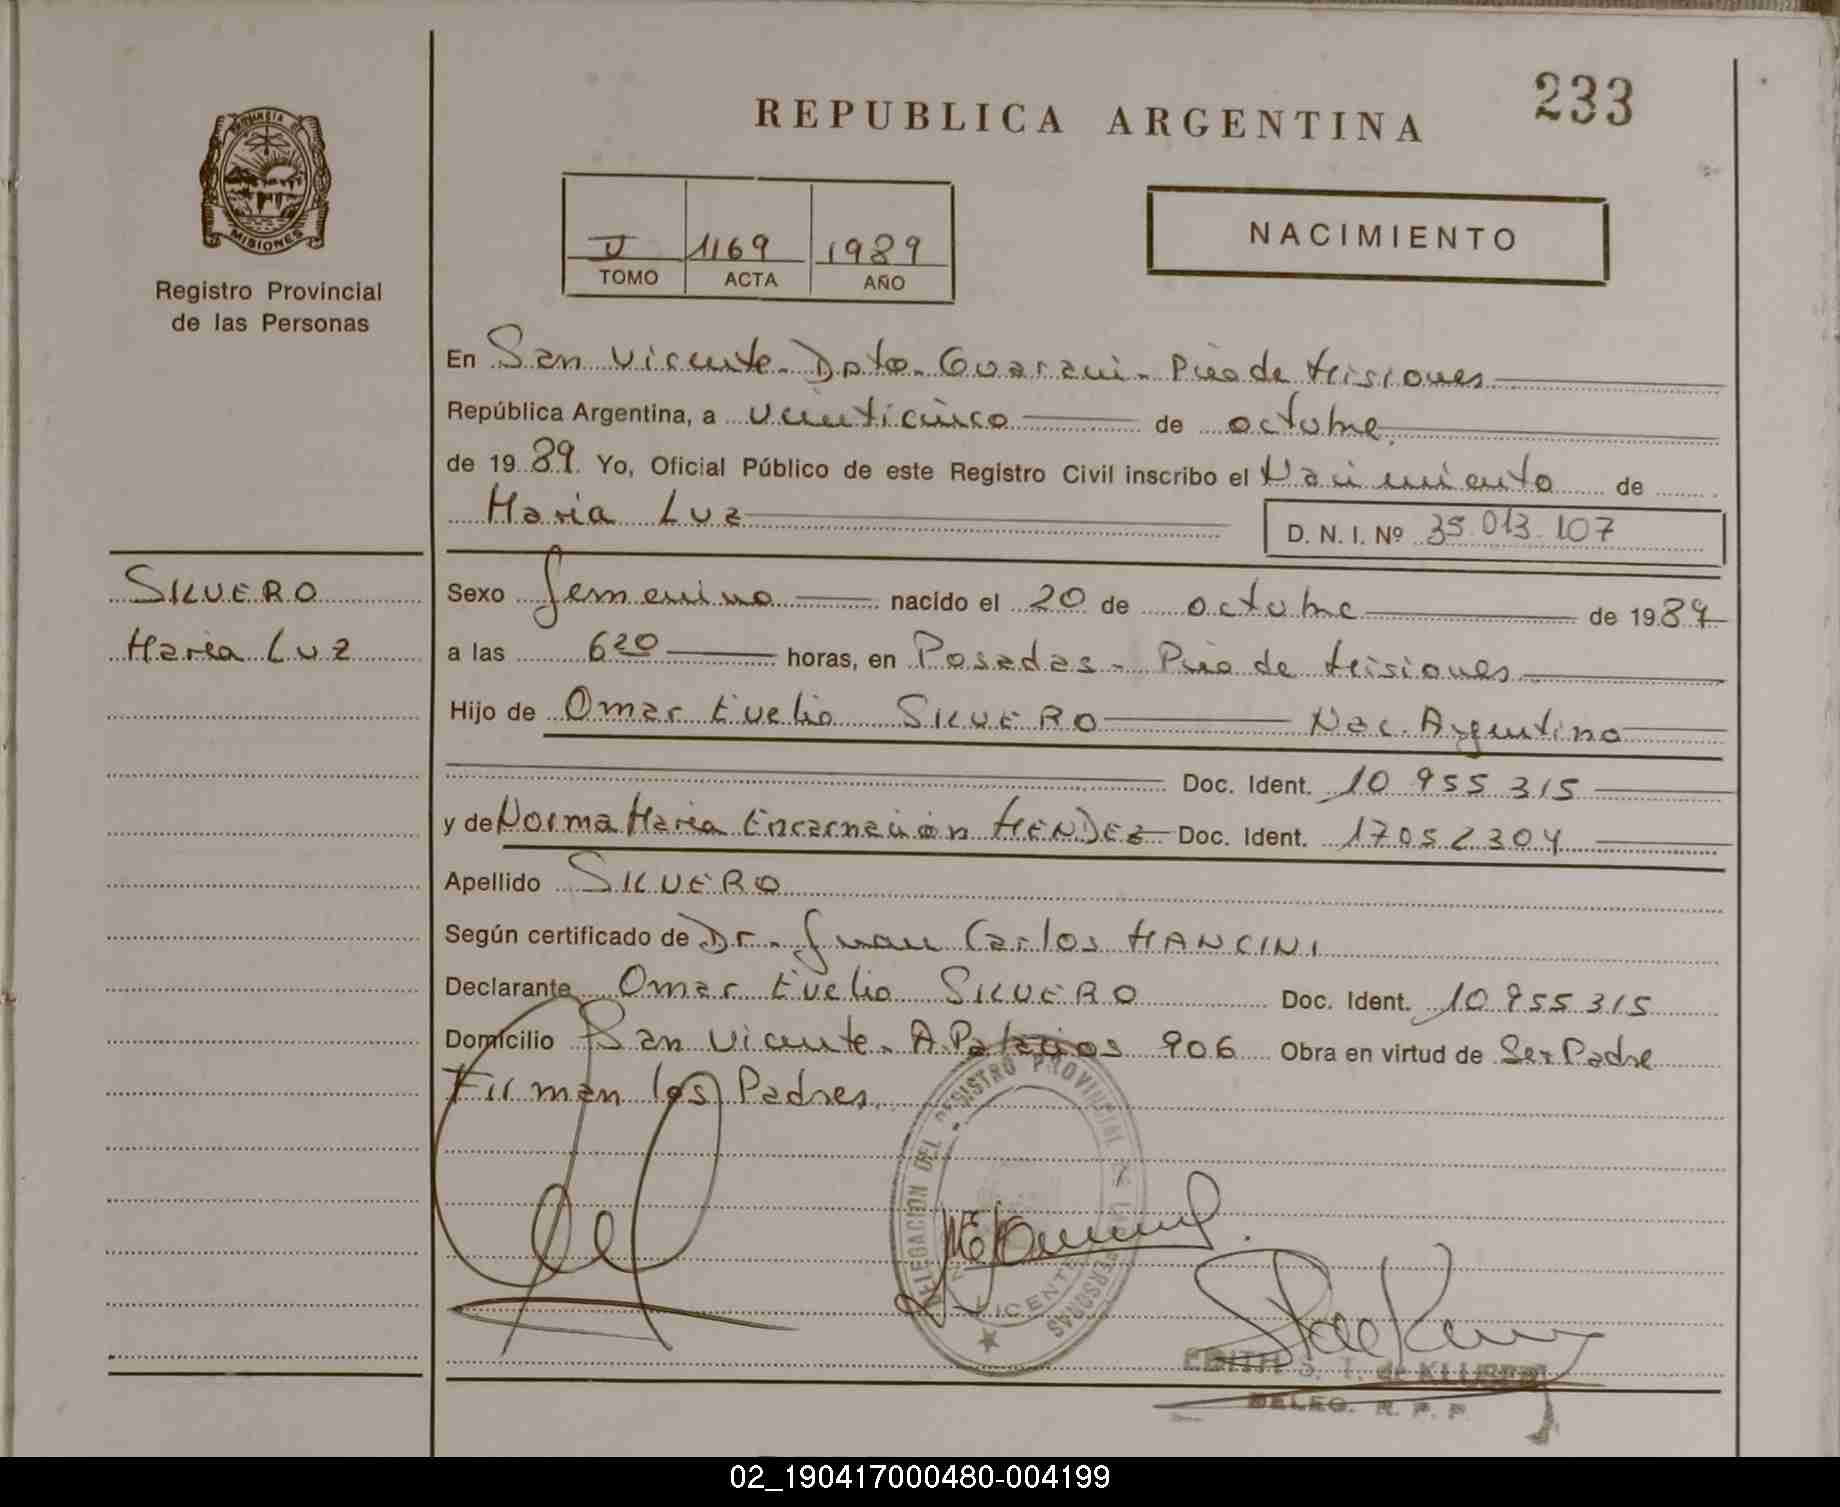 233
REPUBLICA ARGENTINA
PROVINCIA DE
MISIONES
Registro Provincial
de las Personas
II 1169 1989
TOMO ACTA AÑO
NACIMIENTO
En San Vicente - Dpto - Guarani - Pcia de Misiones
República Argentina, a veinticinco de octubre
de 1989 Yo, Oficial Público de este Registro Civil inscribo el Nacimiento de
Maria Luz
D. N. I. Nº 35.013.107
SILVERO
Maria Luz
Sexo femenino nacido el 20 de octubre de 1989
a las 6 20 horas, en Posadas - Pcia de Misiones
Hijo de Omar Evelio SILVERO Nac. Argentino
Doc. Ident. 10 955 315
y de Norma Maria Encarnación MENDEZ Doc. Ident. 17052304
Apellido SILVERO
Según certificado de Dr. Juan Carlos MANCINI
Declarante Omar Evelio SILVERO Doc. Ident. 10.955.315
Domicilio San Vicente - A. Palacios 906 Obra en virtud de Ser Padre
Firman los Padres.
DELEGACION DEL REGISTRO PROVINCIAL DE LAS PERSONAS
VICENTE
EDITH S. T. de
DELEG. R. P. P.
02_190417000480-004199